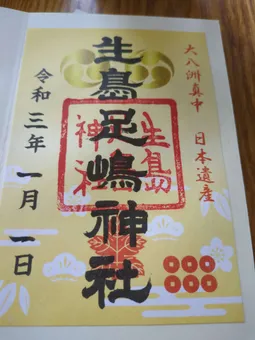 大八洲真中
日本遺産
生島足嶋神社
生島
神社
令和三年一月一日